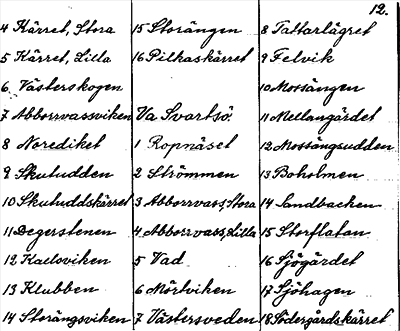 12.
4 Kärret, Stora
5 Kärret, Lilla
6 Västerskogen
7 Abborrvassviken
8 Norediket
9 Skutudden
10 Skutuddskärret
11 Degerstenen
12 Kaclsviken
13 Klubben
14 Storängsviken
15 Storängen
16 Pilkaskärret
Va Svartsö.
1 Ropnäset
2 Strömmen
3 Abborrvass, Stora
4 Abborrvass, Lilla
5 Vad
6 Mörtviken
7 Västersveden
8 Tattarlägret
9 Felvik
10 Mossängen
11 Mellangärdet
12 Mossängsudden
13 Boholmen
14 Sandbacken
15 Storflatan
16 Sjögärdet
17 Sjöhagen
18 Södergårdskärret